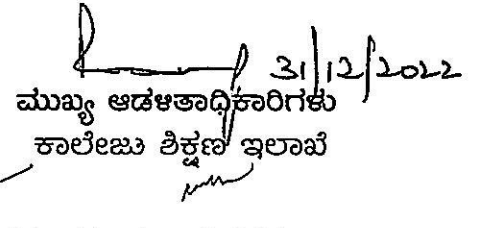 31/12/2022
ಮುಖ್ಯ ಆಡಳಿತಾಧಿಕಾರಿಗಳು
ಕಾಲೇಜು ಶಿಕ್ಷಣ ಇಲಾಖೆ